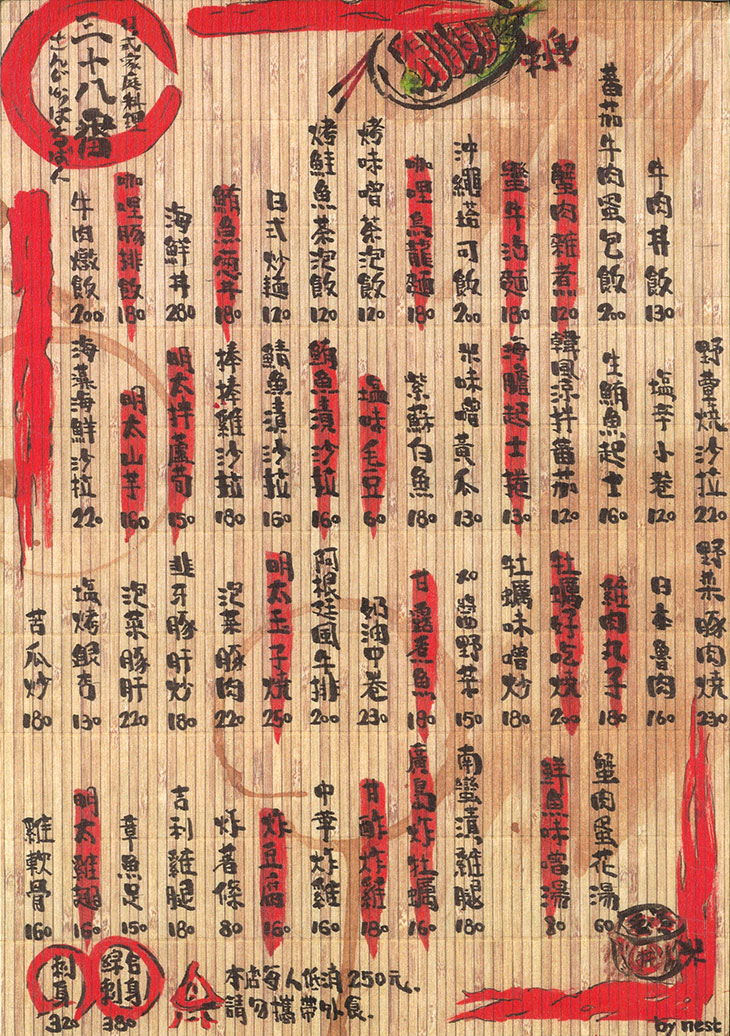 日式家庭料理
三十八番
さんじゅうはちばん
刺身
牛肉丼飯 130
蕃茄牛肉蛋包飯 200
蟹肉雜煮 120
蟹牛沾麵 180
沖繩塔可飯 200
咖哩烏龍麵 180
烤味噌茶泡飯 120
烤鮭魚茶泡飯 120
日式炒麵 120
鮪魚蔥丼 180
海鮮丼 280
咖哩豚排飯 180
牛肉燉飯 200
野蕈燒沙拉 220
塩辛小卷 120
生鮪魚起士 160
韓風涼拌蕃茄 120
海膽起士 130
米味噌黃瓜 130
紫蘇白魚 180
塩味毛豆 60
鮪魚漬沙拉 160
鯖魚漬沙拉 160
棒棒雞沙拉 180
明太拌蘆筍 150
明太山芋 160
海藻海鮮沙拉 220
野菜豚肉燒 230
日本魯肉 160
雞肉丸子 180
牡蠣好吃燒 200
牡蠣味噌炒 180
味醬野菜 150
甘露煮魚 180
奶油中卷 230
阿根廷風牛排 200
明太玉子燒 250
泡菜豚肉 220
韭牙豚肝炒 180
泡菜豚肝 220
塩烤銀杏 130
苦瓜炒 180
蟹肉蛋花湯 60
鮮魚味噌湯 80
南蠻漬雞腿 180
廣島炸牡蠣 160
甘酢炸雞 180
中華炸雞 160
炸豆腐 160
炸薯條 80
吉利雞腿 180
章魚足 150
明太雞翅 160
雞軟骨 160
刺身 320
綜合刺身 380
本店每人低消250元.
請勿攜帶外食.
米
by nest